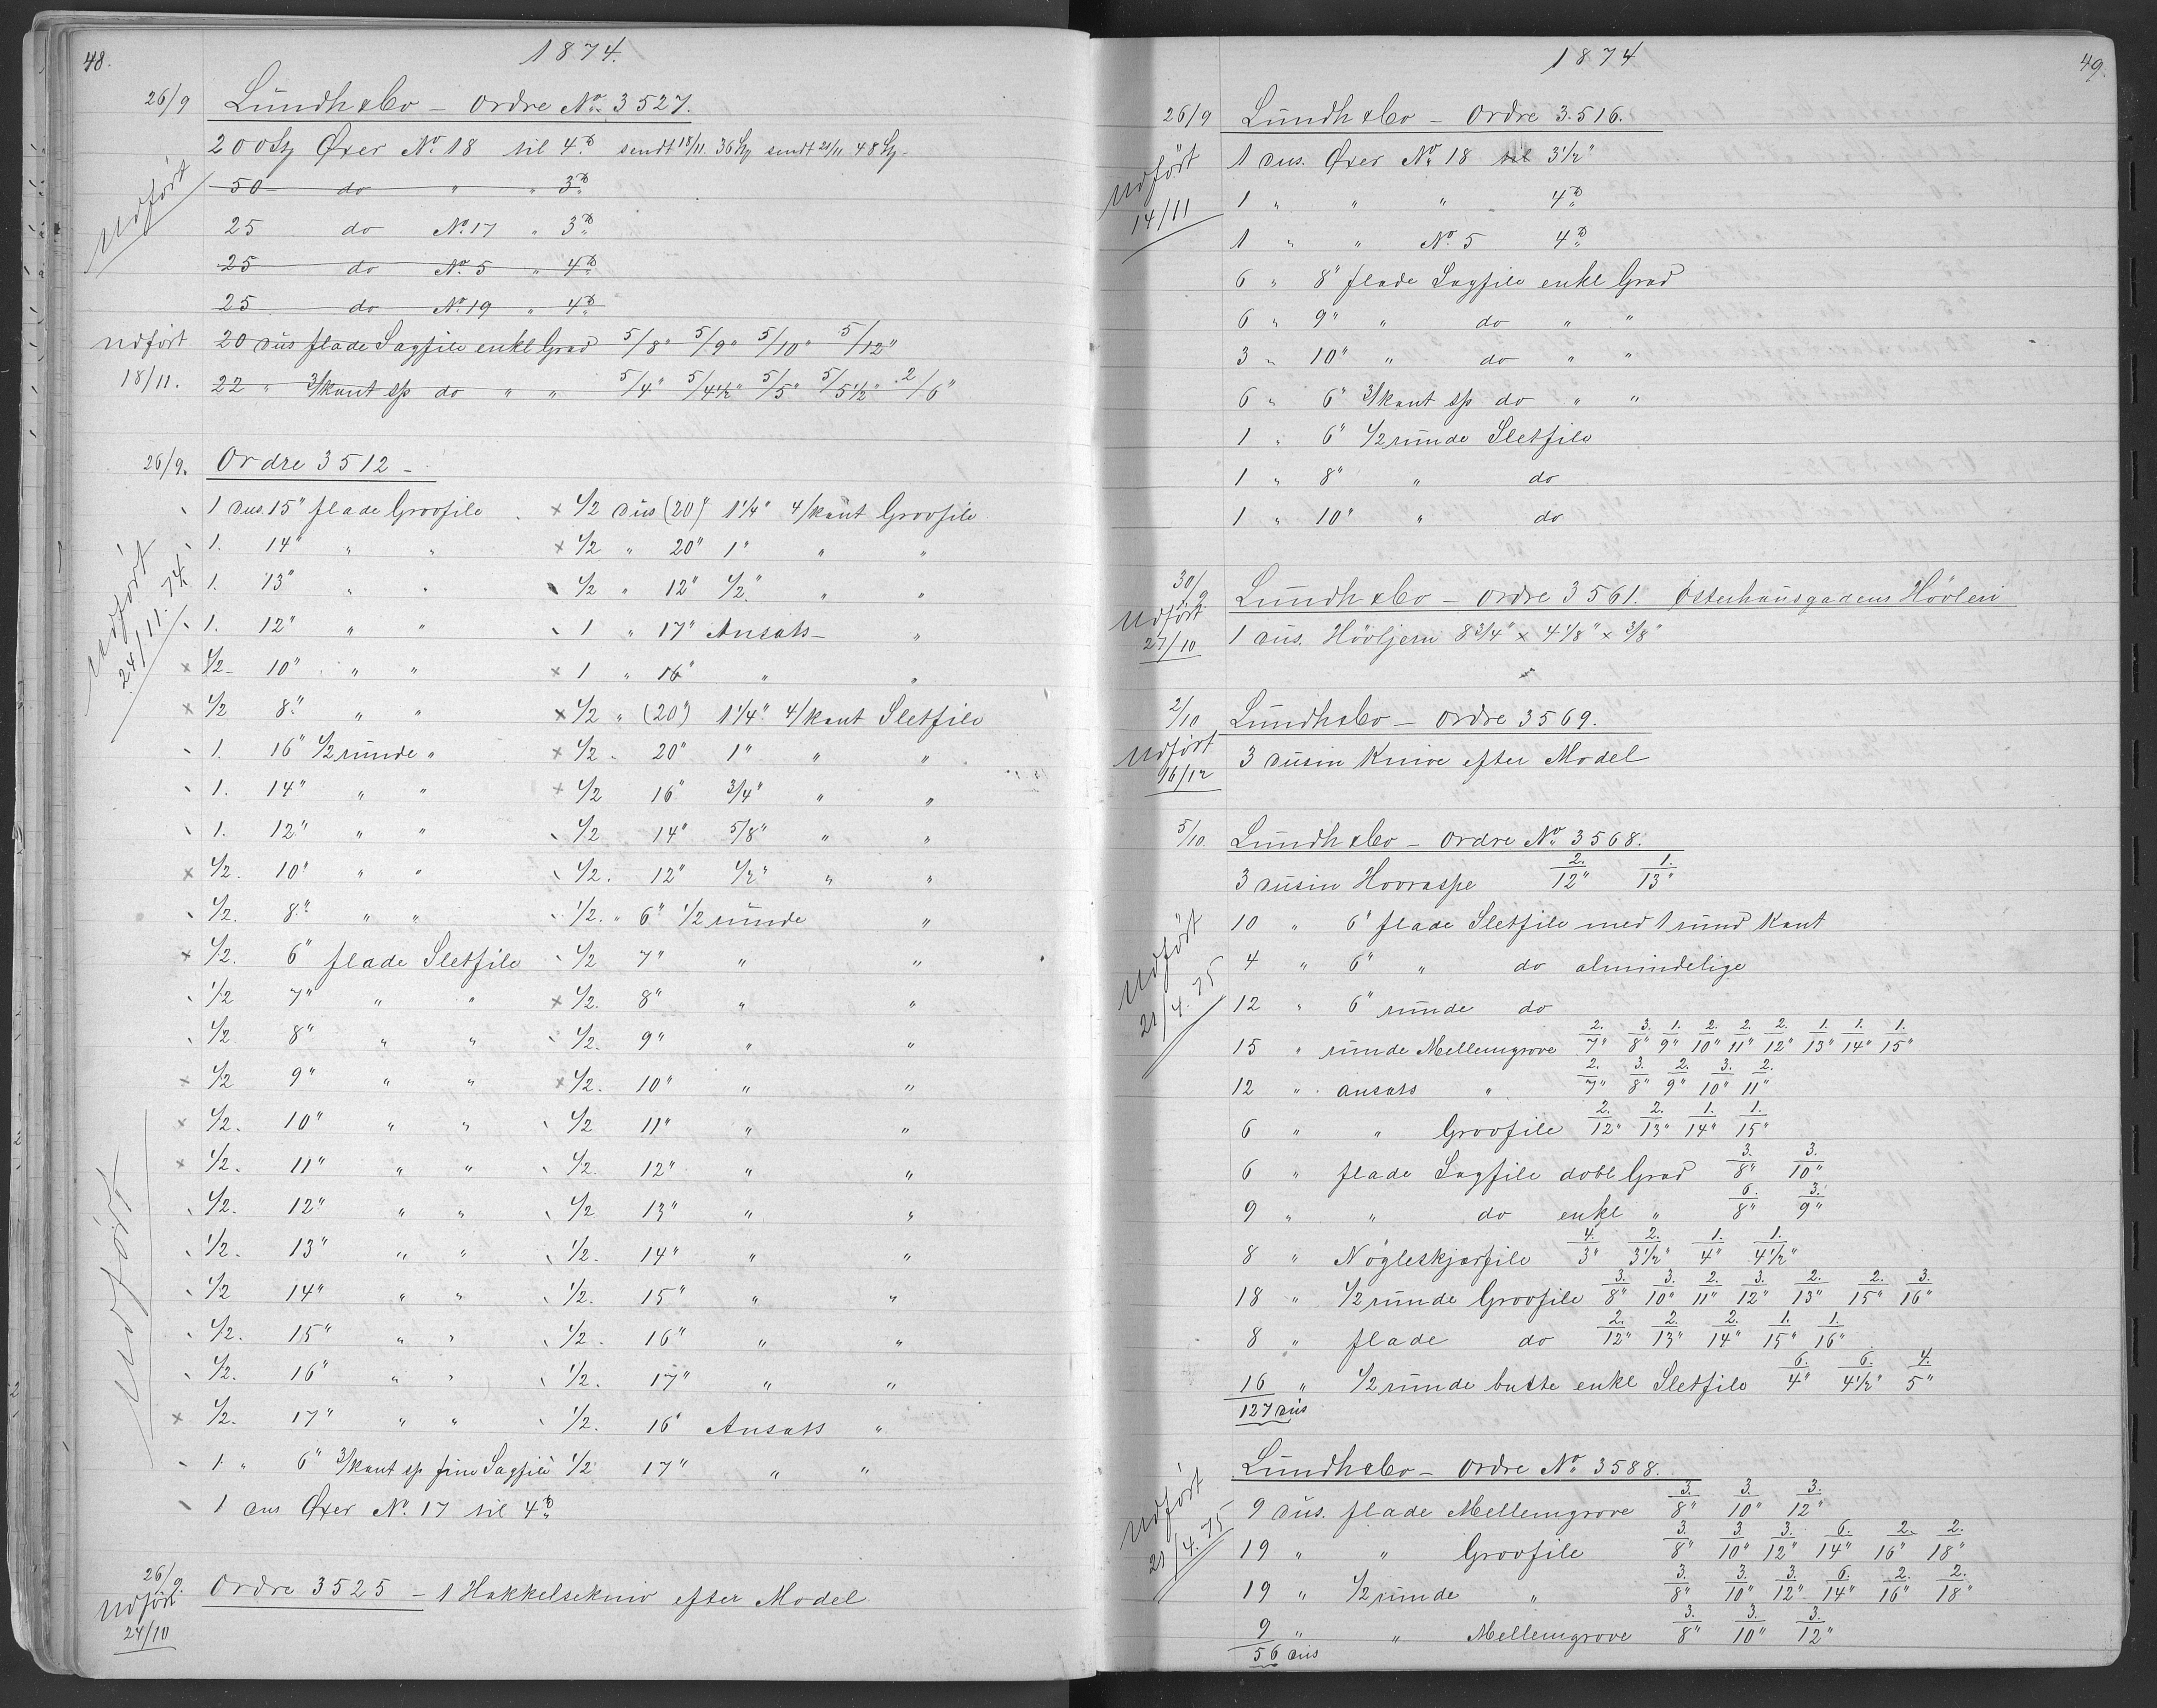 48.
1874.
26/9 Lundh & Co – Ordre No. 3527.
200 Øxer No. 18 til 4 sendt 18/11. 36 sendt 21/11 48
Udført
50 do " " 3
25 do No. 17 " 3
25 do No. 5 " 4
25 do No. 19 " 4
Udført 20 dus flade Sagfile enkl Grad 5/8" 5/9" 5/10" 5/12"
18/11. 22 " 3/kant sp do " " 5/4" 5/4½" 5/5" 5/5½" 2/6"
26/9. Ordre 3512 –
1 dus. 15" flade Groofile × 1/2 dus (20") 1 1/4" 4/kant Groofile
1. 14" " " × 1/2 " 20" 1" " "
1. 13" " " 1/2 " 12" 1/2" " "
1. 12" " " 1 " 17" Ansats – "
× 1/2 – 10" " " × 1 " 16" " "
× 1/2 8" " " × 1/2 " (20") 1 1/4" 4/kant Sletfile
1. 16" 1/2 runde " × 1/2 " 20" 1" " "
1. 14" " " × 1/2 16" 3/4" " "
1. 12" " " 1/2 14" 5/8" " "
× 1/2. 10" " " 1/2. 12" 1/2" " "
1/2. 8" " " 1/2. " 6" 1/2 runde "
× 1/2. 6" flade Sletfile 1/2 7" " "
1/2 7" " " × 1/2. 8" " "
1/2 8" " " 1/2. 9" " "
× 1/2 9" " " × 1/2. 10" " "
× 1/2. 10" " " 1/2 11" " "
× 1/2. 11" " " 1/2. 12" " "
1/2. 12" " " 1/2 13" " "
1/2. 13" " " 1/2. 14" " "
1/2 14" " " 1/2. 15" " "
1/2. 15" " " 1/2. 16" " "
1/2. 16" " " 1/2. 17" " "
× 1/2. 17" " " 1/2. 16" Ansats "
1 " 6" 3/kant sp fine Sagfile 1/2 17" " "
1 dus Øxer No. 17 til 4
Udført 24/11. 74.
Udført
26/9. Ordre 3525 – 1 Hakkelsekniv efter Model
Udført
24/10
1874
49.
26/9 Lundh & Co – Ordre 3516.
1 dus. Øxer No. 18 til 3½"
Udført
1 " " " 4
14/11
1 " " No. 5 4
6 " 8" flade Sagfile enkl Grad
6 " 9" " do " "
3 " 10" " do " "
6 " 6" 3/kant sp do " "
1 " 6" 1/2 runde Sletfile
1 " 8" " do
1 " 10" " do
30/9. Lundh & Co – Ordre 3561. Østerhausgadens Høvleri
Udført
27/10 1 dus. Høvljern 8 3/4" × 4 1/8" × 3/8"
2/10 Lundh & Co – Ordre 3569.
Udført
16/12 3 dusin Knive efter Model
5/10. Lundh & Co – Ordre No. 3568.
3 dusin Hovraspe 2./12" 1./13"
10 " 6" flade Sletfile med 1 rund Kant
Udført
21/4. 75
4 " 6" " do almindelige
12 " 6" runde do
15 " runde Mellemgrove 2./7" 3./8" 1./9" 2./10" 2./11" 2./12" 1./13" 1./14" 1./15"
12 " ansats " 2./7" 3./8" 2./9" 3./10" 2./11"
6 " " Groofile 2./12" 2./13" 1./14" 1./15"
6 " flade Sagfile dobl Grad 3./8" 3./10"
9 " " do enkl " 6./8" 3./9"
8 " Nøgleskjærfile 4./3" 2./3½" 1./4" 1./4½"
18 " 1/2 runde Groofile 3./8" 3./10" 2./11" 3./12" 2./13" 2./15" 3./16"
8 " flade do 2./12" 2./13" 2./14" 1./15" 1./16"
16 " 1/2 runde butte enkl Sletfile 6./4" 6./4½" 4./5"
127 dus
Lundh & Co – Ordre No. 3588.
Udført
21/4. 75
9 dus. flade Mellemgrove 3./8" 3./10" 3./12"
19 " " Groofile 3./8" 3./10" 3./12" 6./14" 2./16" 2./18"
19 " 1/2 runde " 3./8" 3./10" 3./12" 6./14" 2./16" 2./18"
9 " " Mellemgrove 3./8" 3./10" 3./12"
56 dus